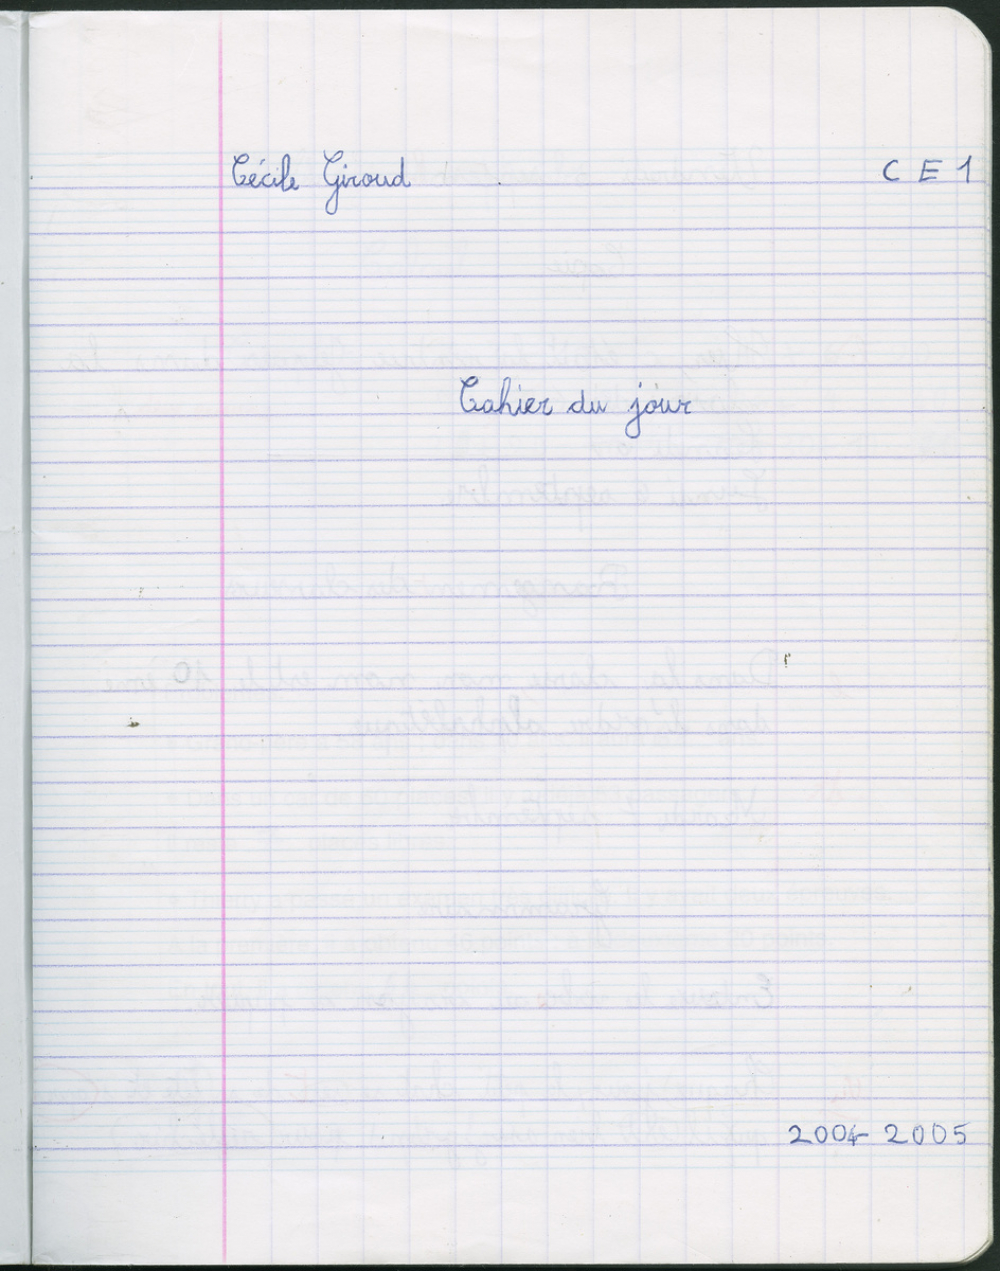 Cécile Giroud CE1
Cahier du jour
2004-2005